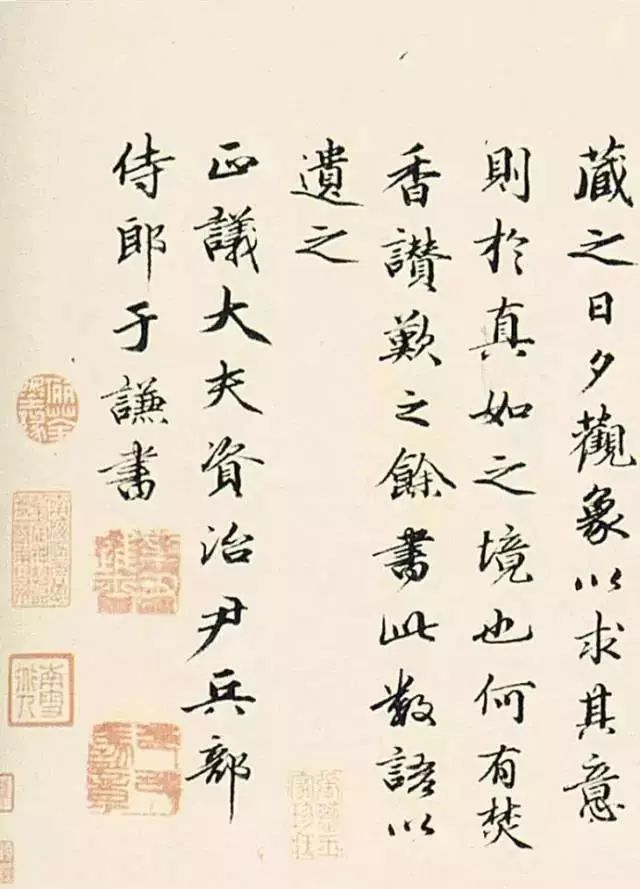 藏之日夕觀象以求其意
則於真如之境也何有焚
香讃歎之餘書此數語以
遺之
正議大夫資治尹兵部
侍郎于謙書